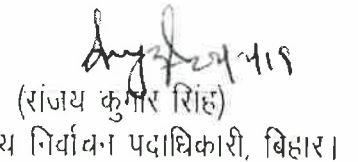 (संजय कुमार सिंह)
य निर्वाचन पदाधिकारी, बिहार।